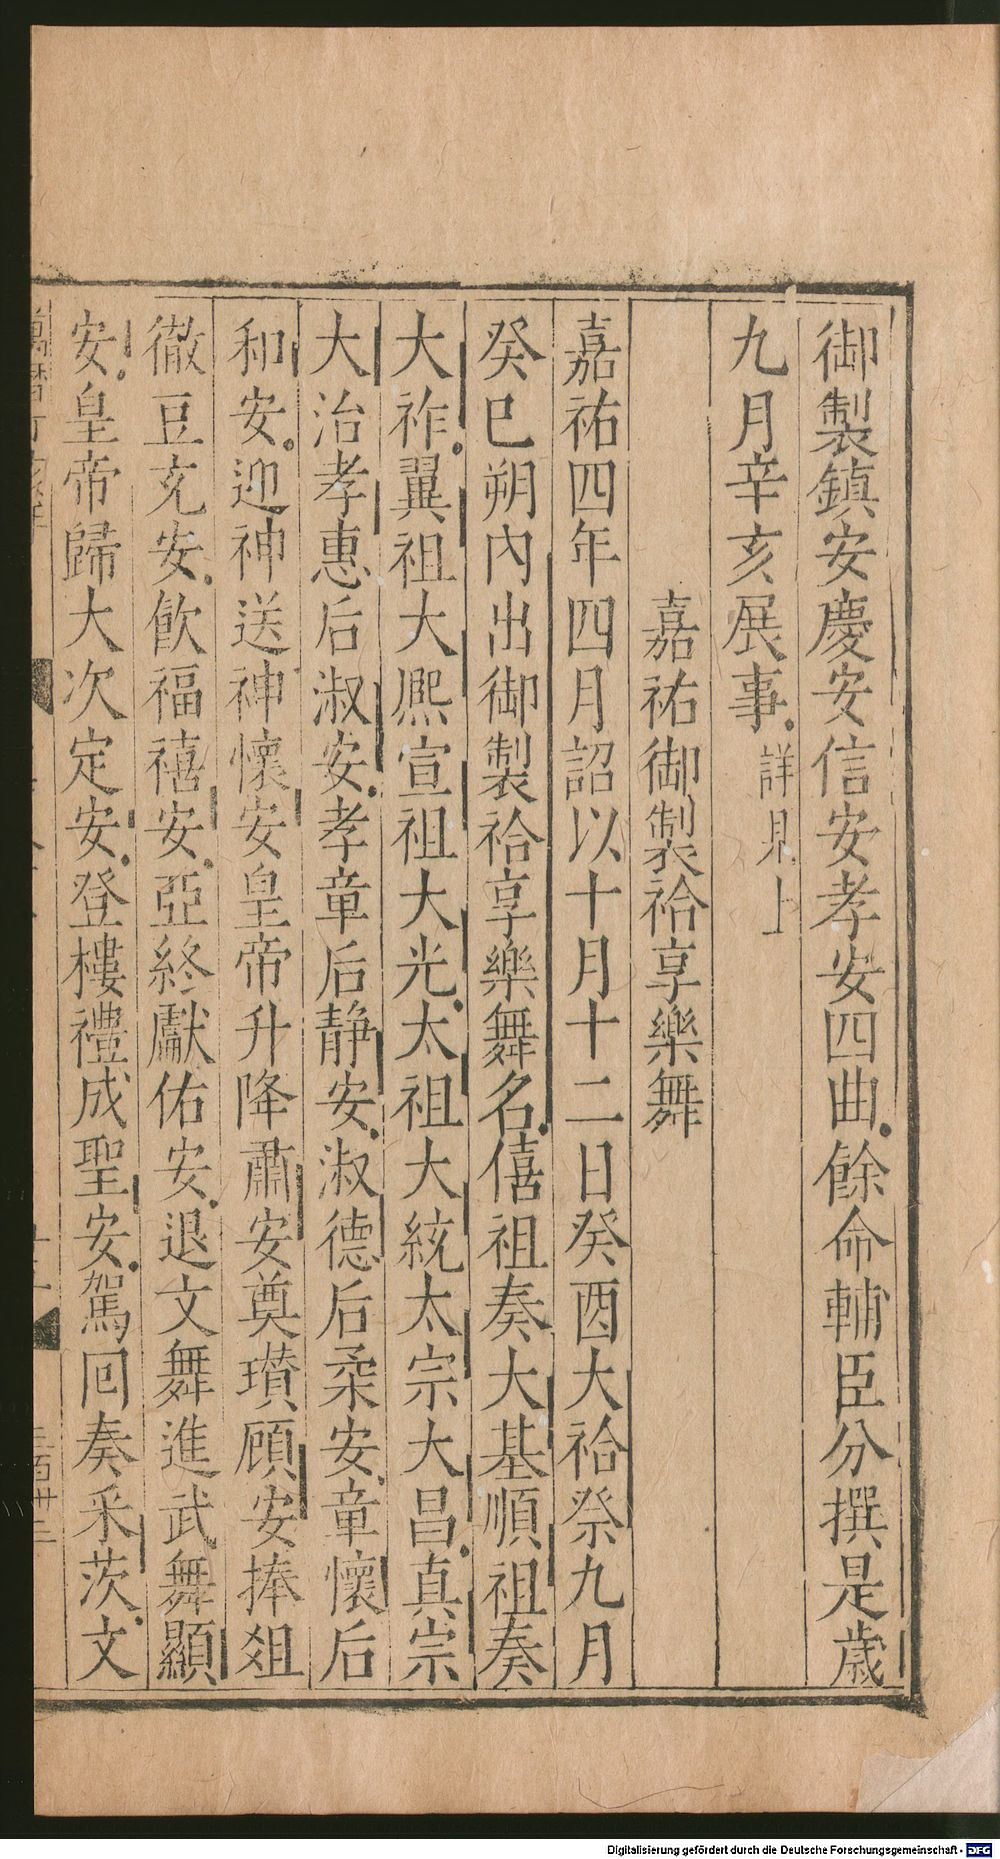 御製鎮安慶安信安孝安四曲餘命輔臣分撰是歲
九月辛亥展事詳見上
嘉祐御製祫享樂舞
嘉祐四年四月詔以十月十二日癸酉大祫祭九月
癸巳朔內出御製祫享樂舞名僖祖奏大基順祖奏
大祚翼祖大熈宣祖大光太祖大統太宗大昌真宗
大治孝惠后淑安孝章后静安淑德后柔安章懷后
和安迎神送神懷安皇帝升降肅安奠瓚顧安捧爼
徹豆充安飲福禧安亞終獻佑安退文舞進武舞顯
安皇帝歸大次定安登樓禮成聖安駕回奏采茨文
Digitalisierung gefördert durch die Deutsche Forschungsgemeinschaft - DFG